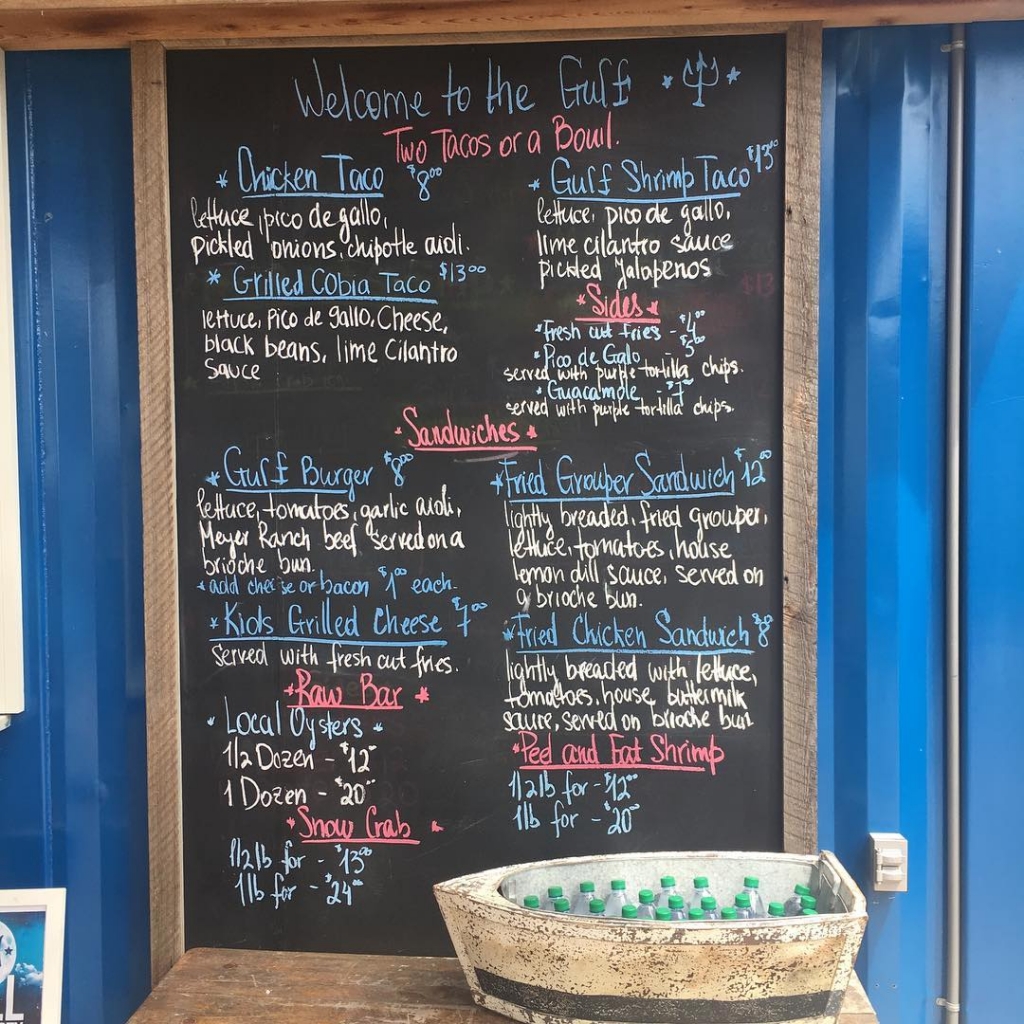 Welcome to the Gulf
Two Tacos or a Bowl.
* Chicken Taco $8.00
lettuce, pico de gallo,
pickled onions, chipotle aioli.
* Grilled Cobia Taco $13.00
lettuce, Pico de gallo, Cheese,
black beans, lime Cilantro
sauce
* Gulf Shrimp Taco $13.00
lettuce, pico de gallo,
lime cilantro sauce
pickled Jalapenos
* Sides *
*Fresh cut fries - $4.00
*Pico de Galo $5.00
served with purple tortilla chips.
*Guacamole - $7.00
served with purple tortilla chips.
*Sandwiches*
* Gulf Burger $8.00
lettuce, tomatoes, garlic aioli,
Meyer Ranch beef served on a
brioche bun.
* add cheese or bacon $1.00 each.
* Kids Grilled Cheese $7.00
Served with fresh cut fries.
* Raw Bar *
* Local Oysters *
1/2 Dozen - $12
1 Dozen - $20
* Snow Crab *
1/2 lb for - $13.00
1lb for - $24
*Fried Grouper Sandwich $12.00
lightly breaded, fried grouper,
lettuce, tomatoes, house
lemon dill sauce, served on
a brioche bun.
*Fried Chicken Sandwich $8.00
lightly breaded with lettuce,
tomatoes, house, buttermilk
sauce, served on brioche bun
*Peel and Eat Shrimp
1/2lb for - $12.00
1lb for - $20